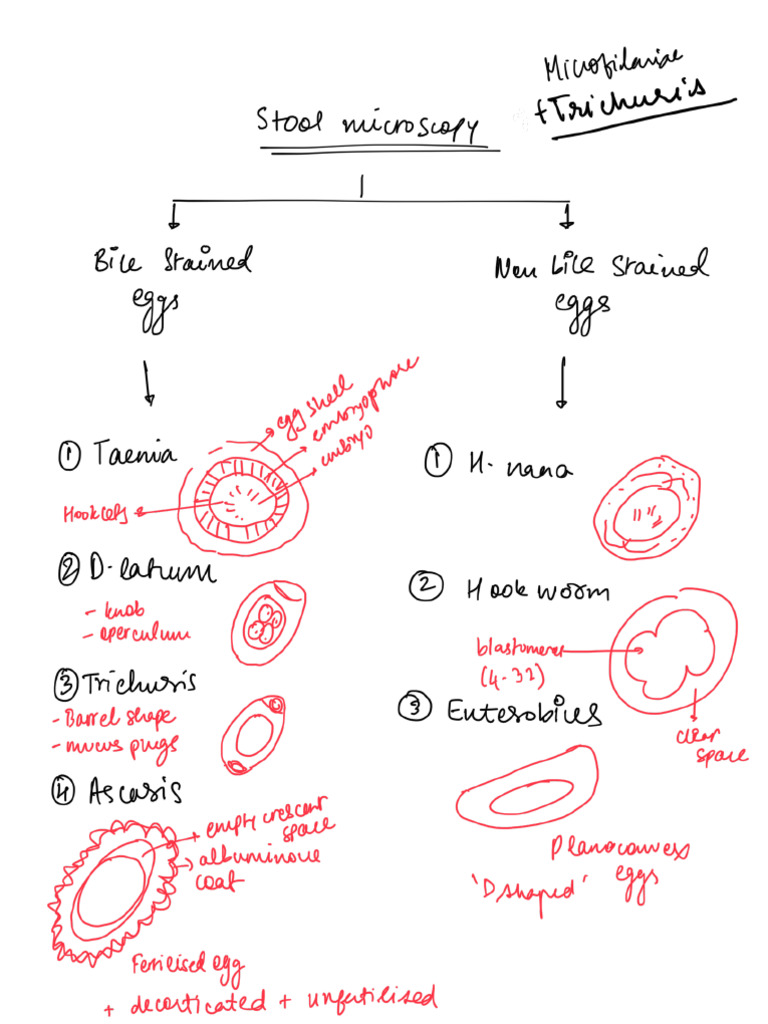 Microfilariae
+ Trichuris
Stool microscopy
Bile stained
eggs
Non bile stained
eggs
① Taenia
egg shell
embryophore
embryo
Hooklets
② D. latum
- knob
- operculum
③ Trichuris
- Barrel shape
- mucus plugs
④ Ascaris
empty crescent
space
albuminous
coat
Fertilised egg
+ decorticated + unfertilised
① H. nana
② Hook worm
blastomeres
(4-32)
clear
space
③ Enterobius
Planoconvex
eggs
'D shaped'